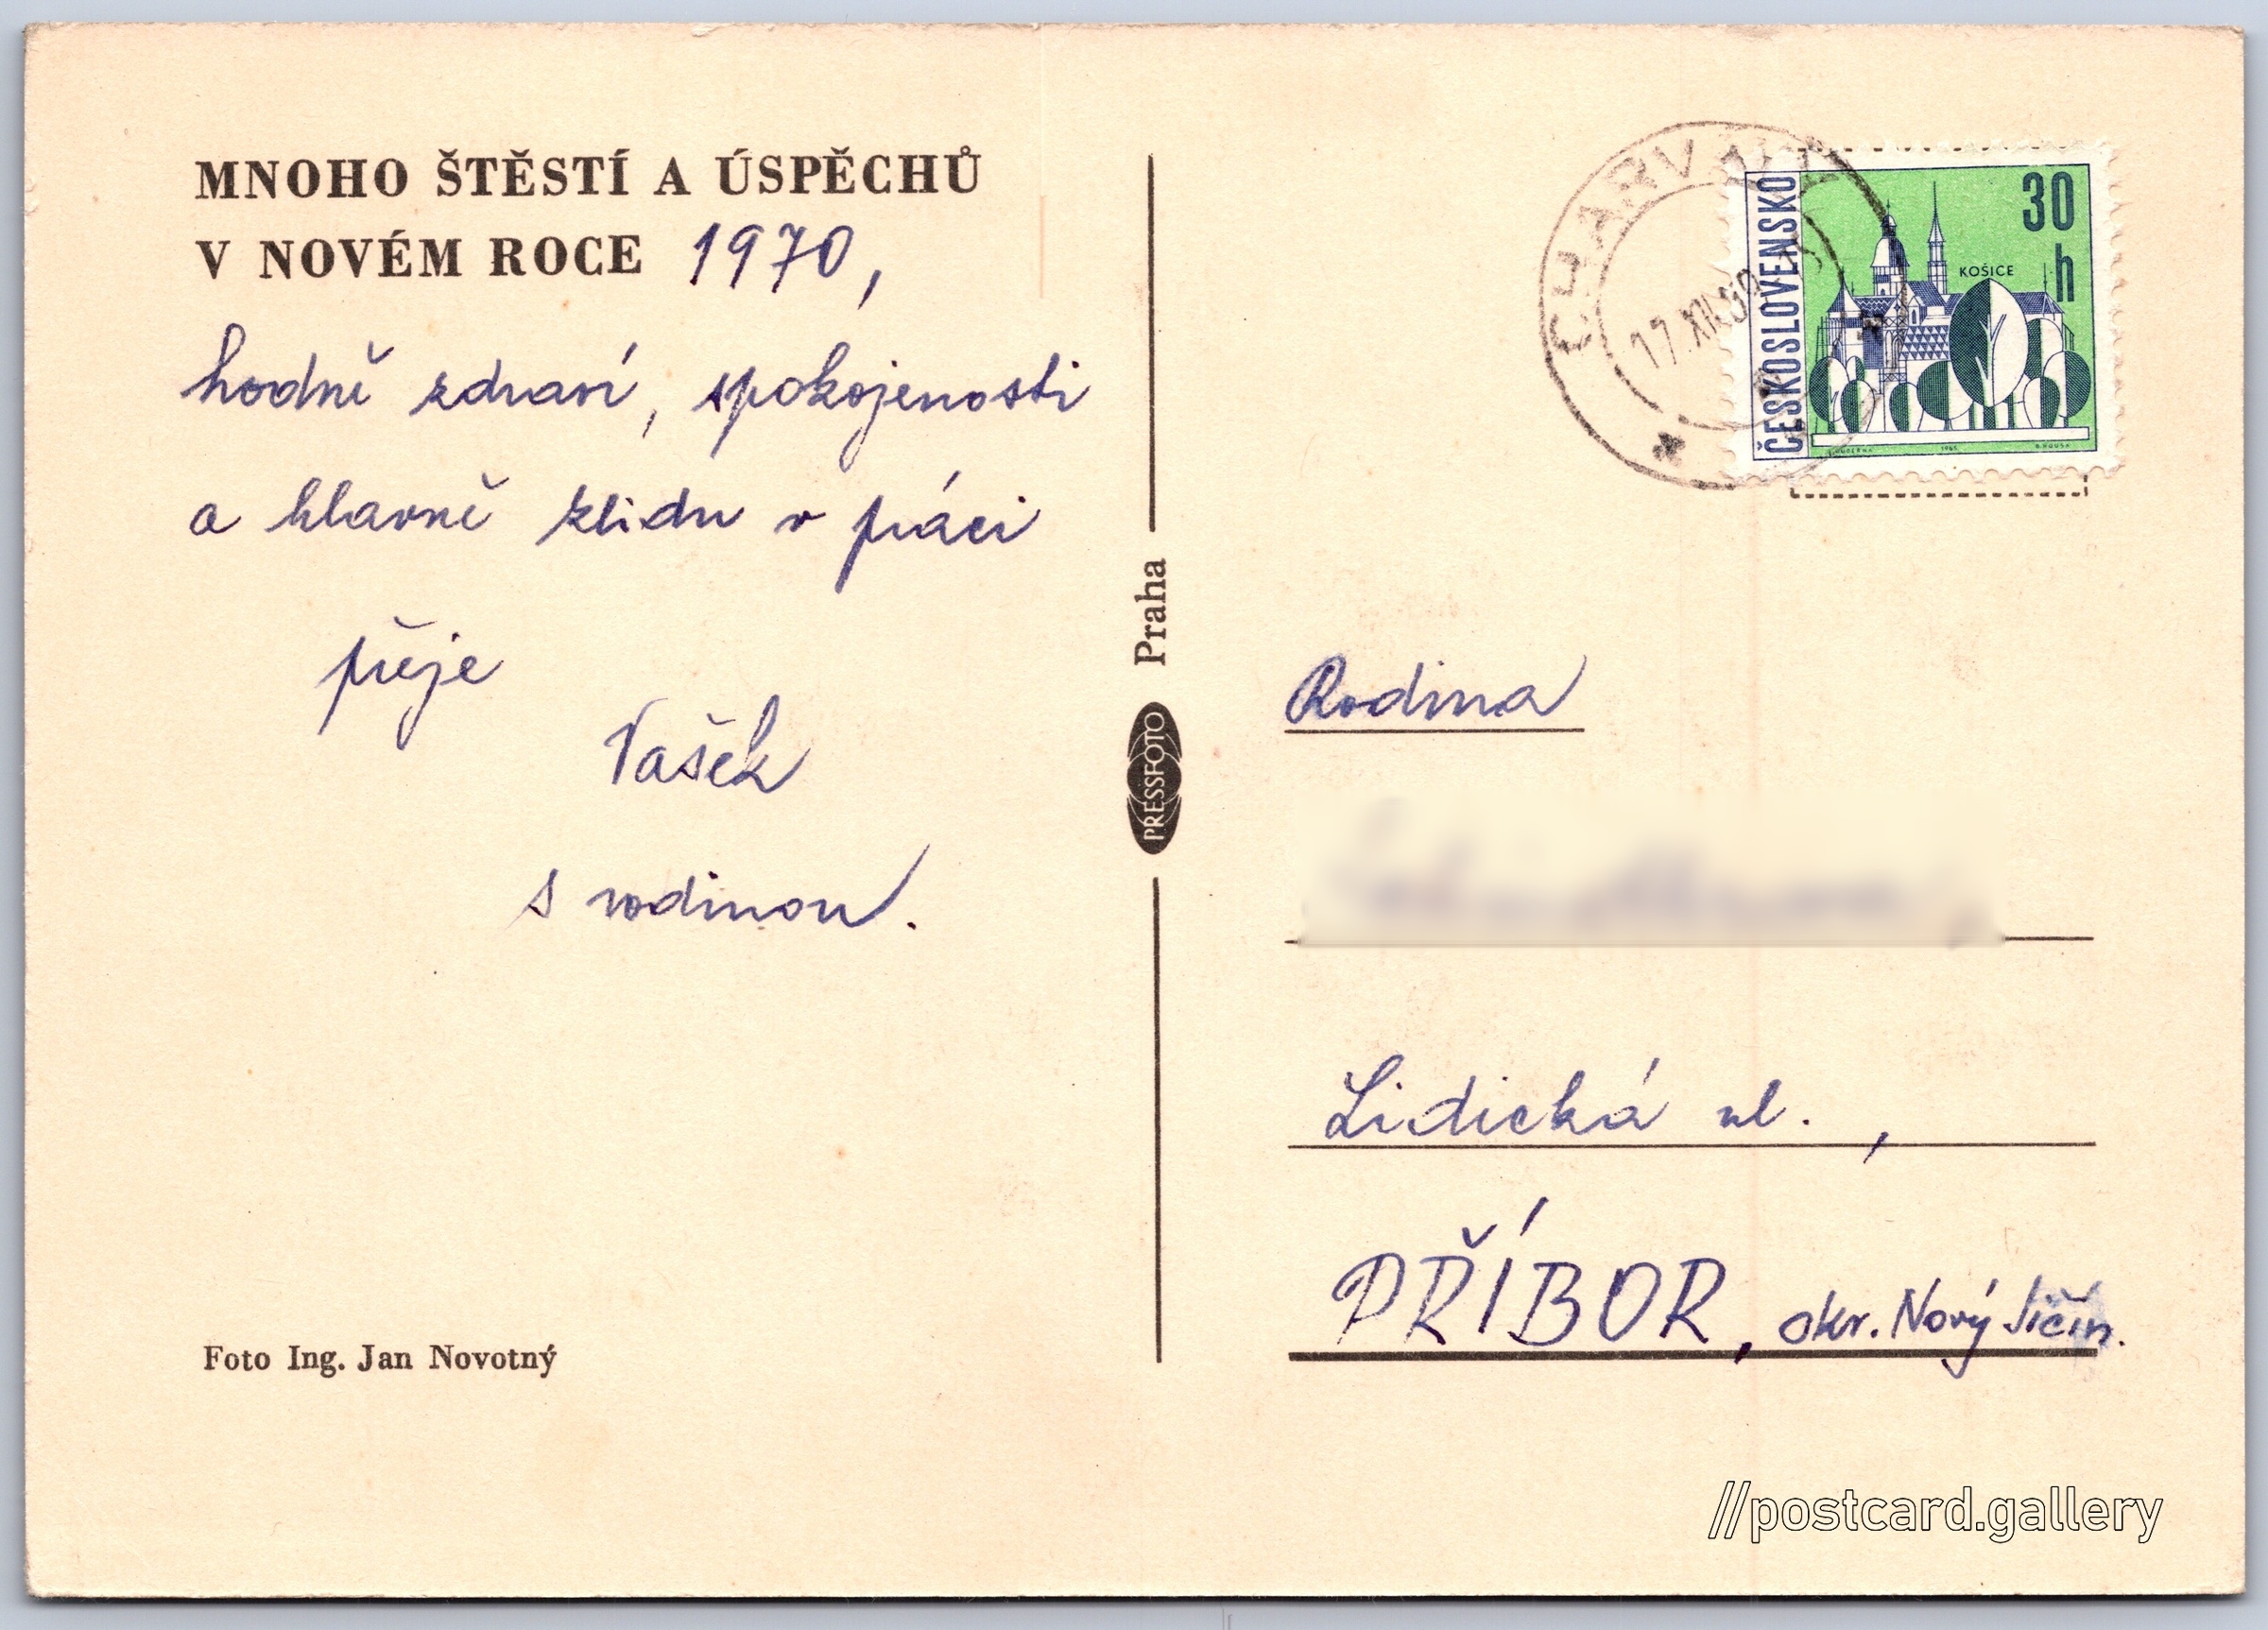 MNOHO ŠTĚSTÍ A ÚSPĚCHŮ
V NOVÉM ROCE 1970,
hodně zdraví, spokojenosti
a hlavně klidu v práci
přeje
Vašek
s rodinou.
Foto Ing. Jan Novotný
Praha
PRESSFOTO
17.XII.69
ČESKOSLOVENSKO
30
h
KOŠICE
Rodina
Lidická ul. ,
PŘÍBOR, okr. Nový Jičín.
//postcard.gallery